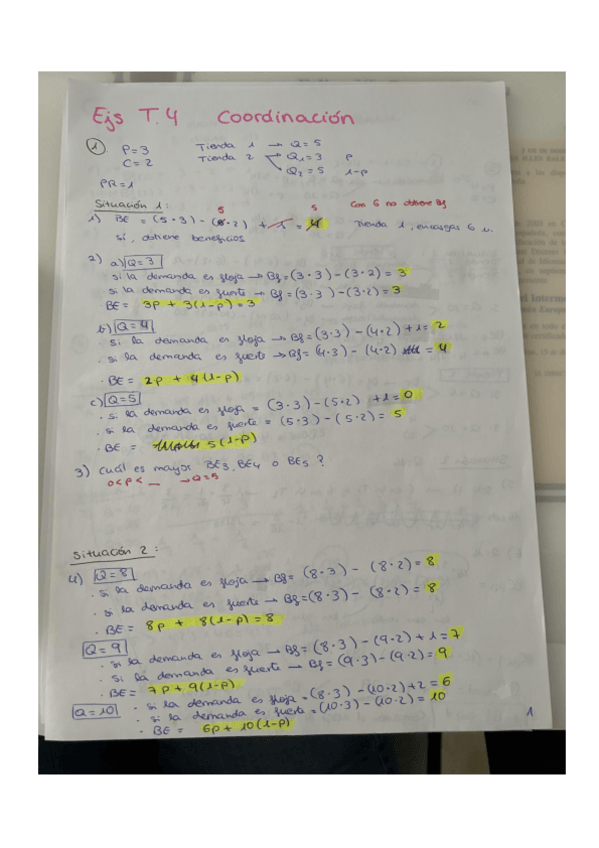 Ejs T.4 Coordinación
1 P=3 Tienda 1 → Q=5
C=2 Tienda 2 → Q₁=3 p
Q₂=5 1-p
PR=1
Situación 1: 5 5 Con 6 no obtiene Bf
1) BE = (5·3) - (6·2) + 1 = 4 Tienda 1, encargas 6 u.
sí, obtiene beneficios
2) a) Q=3
si la demanda es floja → Bf=(3·3)-(3·2) = 3
si la demanda es fuerte → Bf=(3·3)-(3·2) = 3
BE= 3p + 3(1-p) = 3
b) Q=4
· si la demanda es floja → Bf=(3·3) - (4·2) + 1 = 2
· si la demanda es fuerte → Bf=(4·3) - (4·2) = 4
· BE = 2p + 4(1-p)
c) Q=5
· si la demanda es floja = (3·3) - (5·2) + 1 = 0
· si la demanda es fuerte = (5·3) - (5·2) = 5
· BE = 5(1-p)
3) cuál es mayor BE₃, BE₄ o BE₅ ?
0<p< __ → Q=5
Situación 2:
4) Q=8
· si la demanda es floja → Bf= (8·3) - (8·2) = 8
· si la demanda es fuerte → Bf=(8·3) - (8·2) = 8
· BE = 8p + 8(1-p) = 8
Q=9
· si la demanda es floja → Bf= (8·3) - (9·2) + 1 = 7
· si la demanda es fuerte → Bf= (9·3) - (9·2) = 9
· BE= 7p + 9(1-p)
Q=10 · si la demanda es floja = (8·3) - (10·2) + 2 = 6
· si la demanda es fuerte = (10·3) - (10·2) = 10
· BE = 6p + 10(1-p)
1